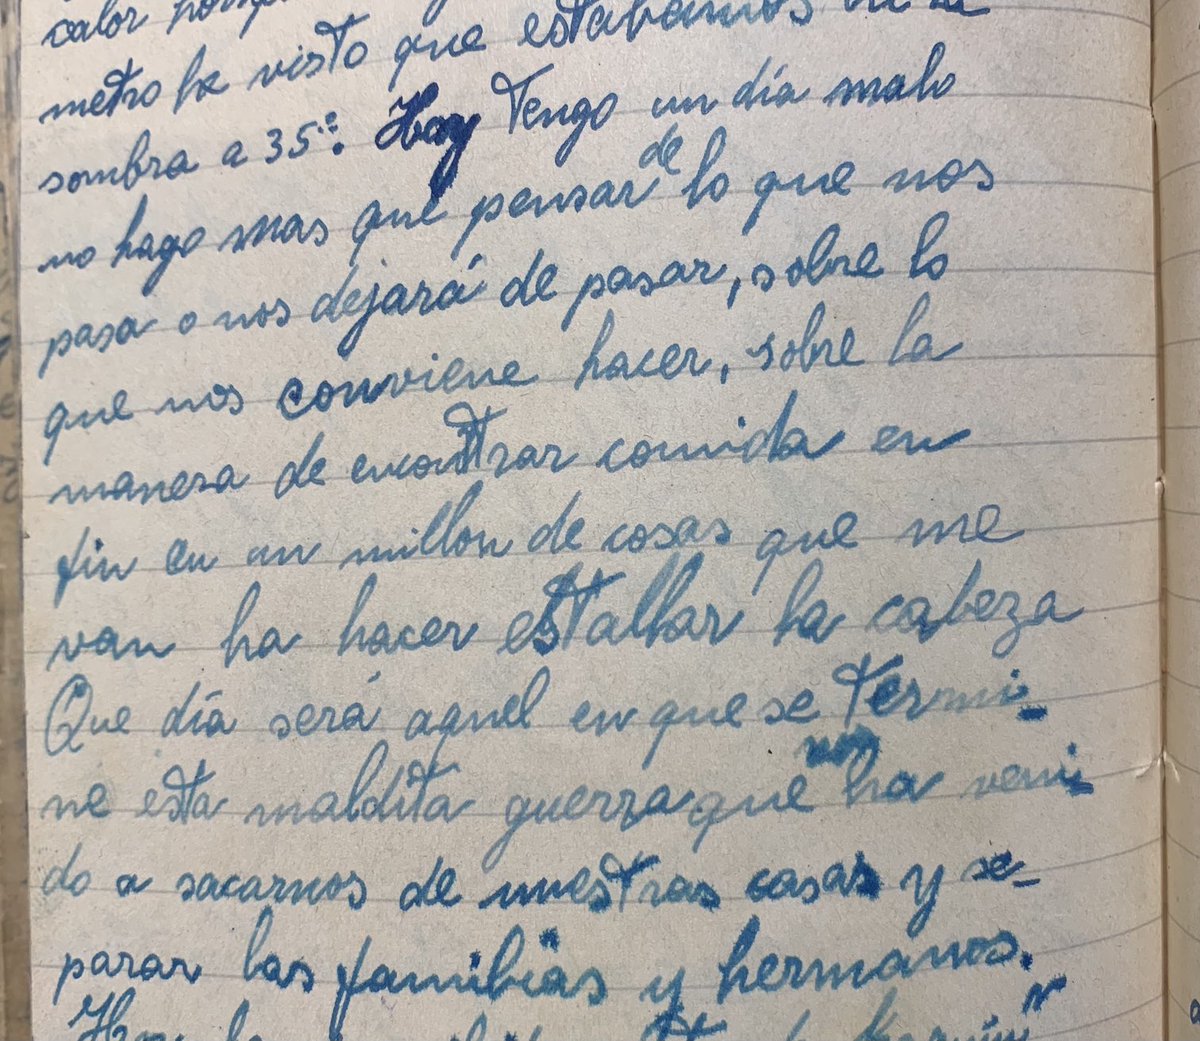 calor
metro he visto que estabamos en la
sombra a 35º. Hoy Tengo un día malo
no hago mas que pensar de lo que nos
pasa o nos dejará de pasar, sobre lo
que nos conviene hacer, sobre la
manera de encontrar comida en
fin en un millon de cosas que me
van ha hacer estallar la cabeza
Que día será aquel en que se Termi-
ne esta maldita guerra que nos ha veni-
do a sacarnos de nuestras casas y se-
parar las familias y hermanos.